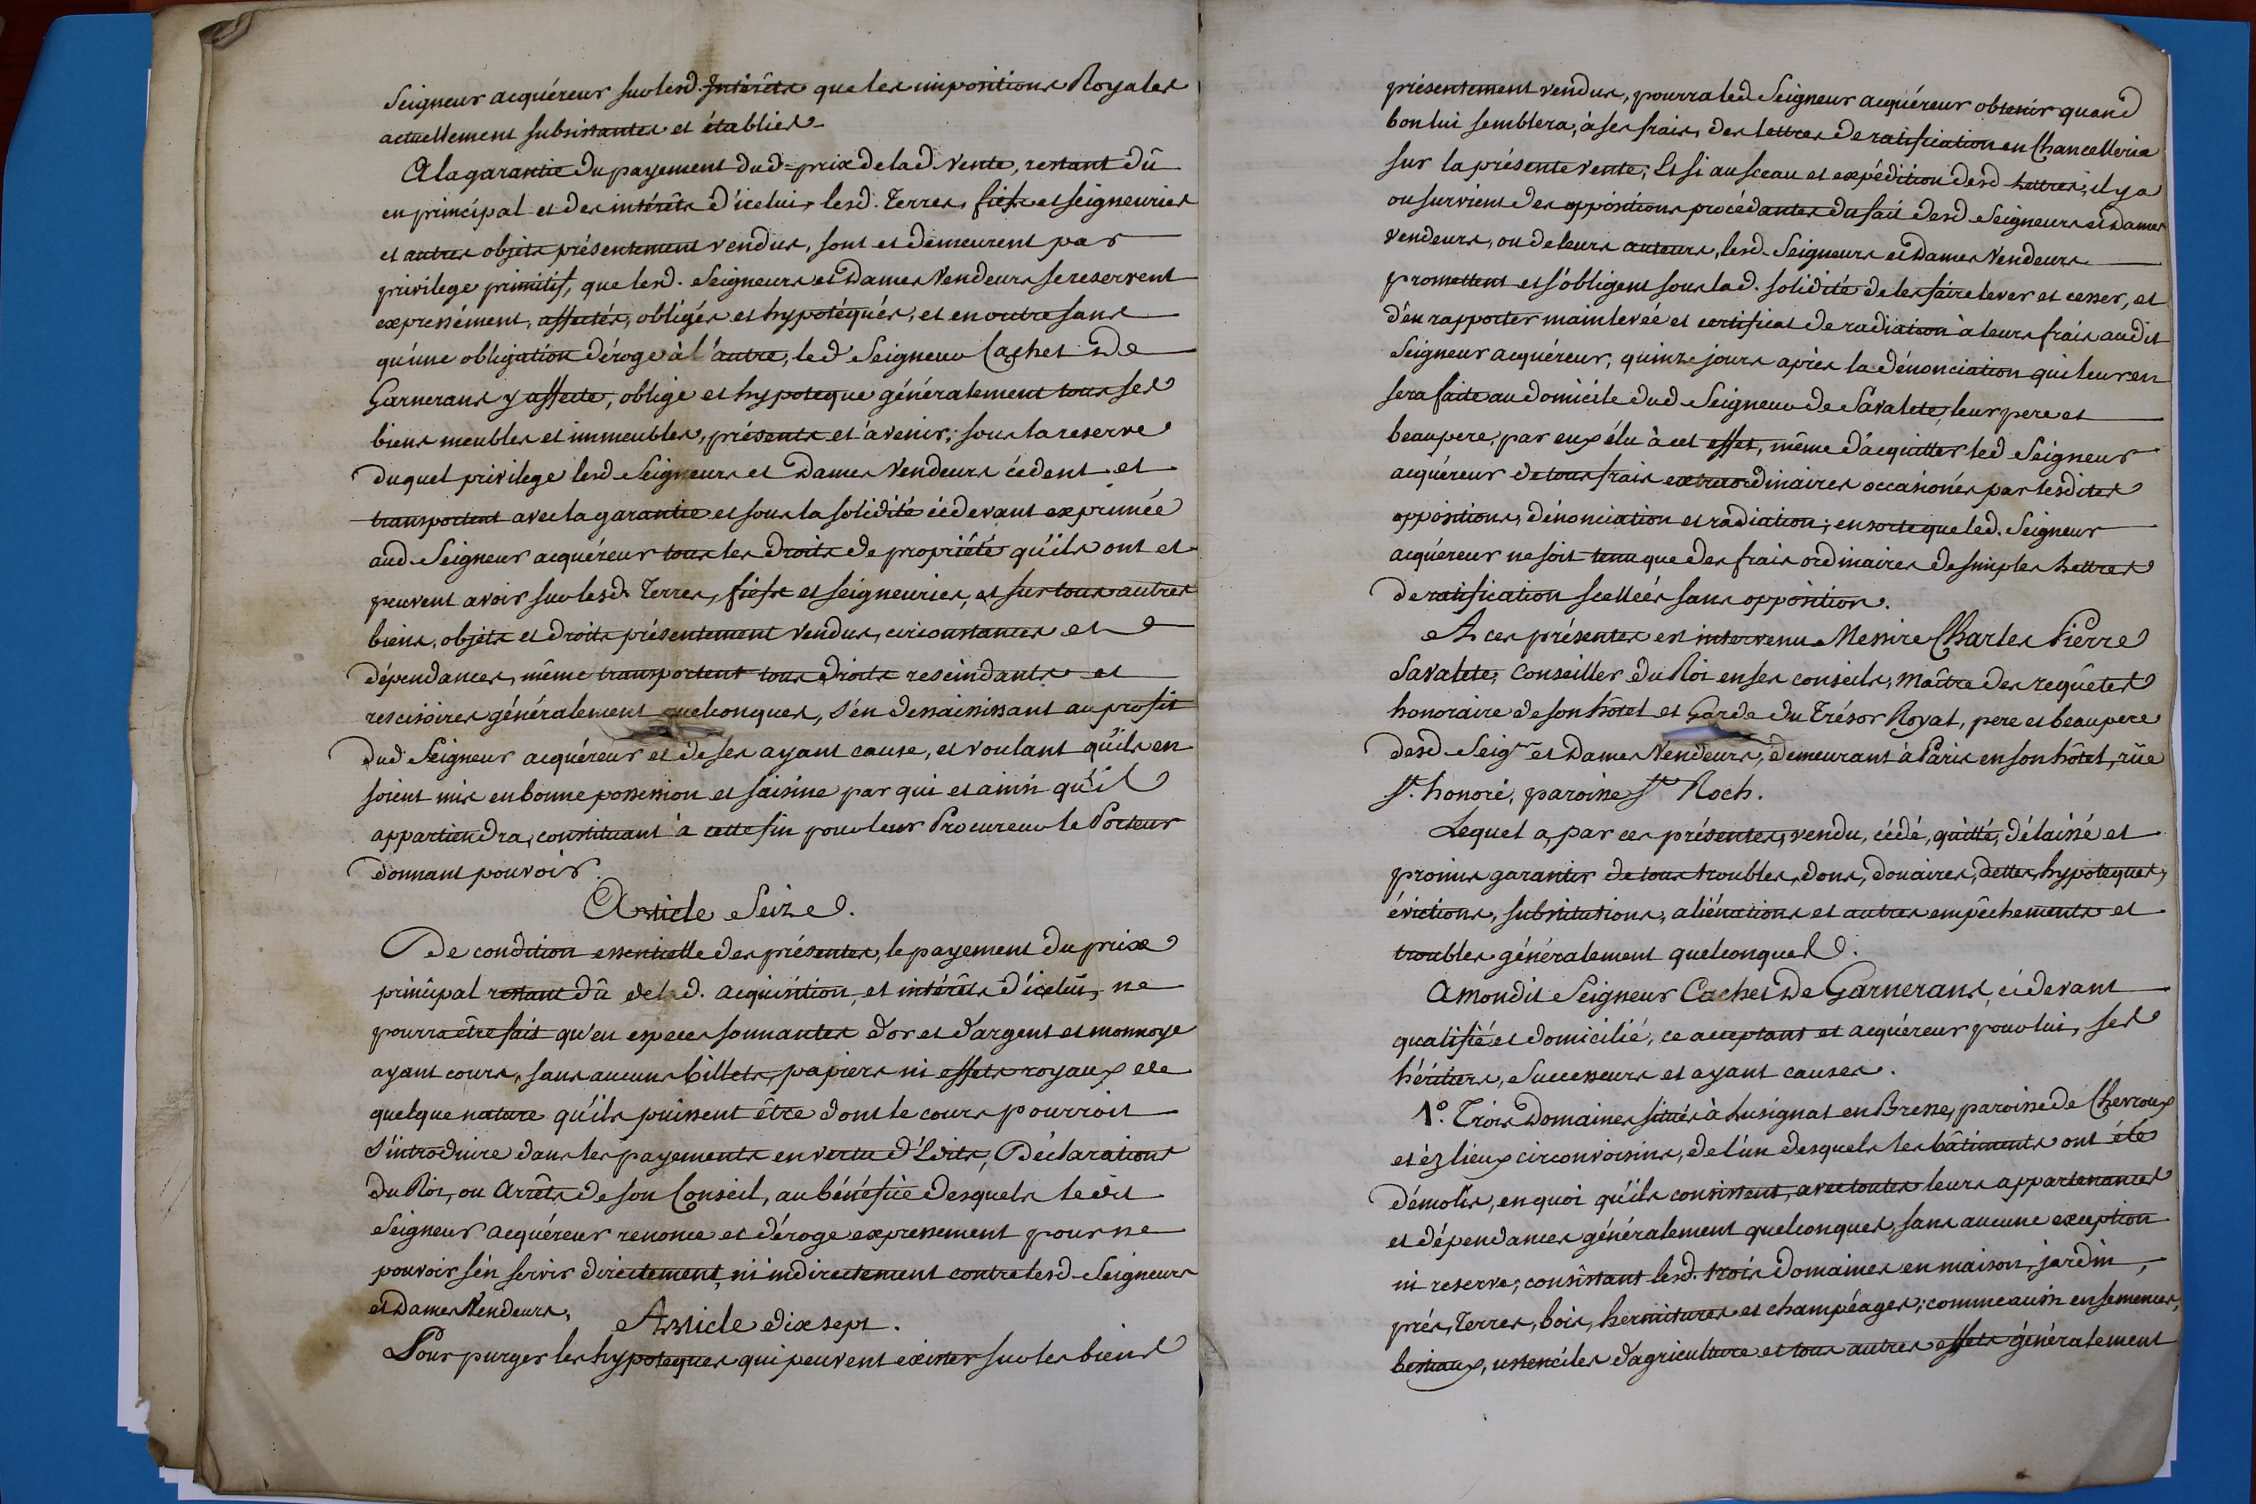 Seigneur acquéreur sur lesd. Intérêts que les impositions Royales
actuellement subsistantes et établies.
A la garantie du payement dud. prix de lad. vente, restant dû
en principal et des intérêts d'icelui, lesd. Terres, fiefs et seigneuries
et autres objets présentement vendus, sont et demeurent par
privilege primitif, que lesd. Seigneurs et Dames Vendeurs se reservent
expressément, affectés, obligés et hypotéqués; et en outre sans
qu'une obligation déroge à l'autre, led. Seigneur Cachet De
Garnerans y affecte, oblige et hypoteque généralement tous ses
biens meubles et immeubles, présents et à venir; sous la reserve
duquel privilege lesd. Seigneurs et Dames Vendeurs cédent et
transportent avec la garantie et sous la solidité cidevant exprimée
aud. Seigneur acquéreur tous les droits de propriété qu'ils ont et
peuvent avoir sur lesd. Terres, fiefs et seigneuries, et sur tous autres
biens, objets et droits présentement vendus, circonstances et
dépendances, même transportent tous droits rescindants et
rescisoires généralement quelconques, s'en dessaisissant au profit
dud. Seigneur acquéreur et de ses ayant cause, et voulant qu'ils en
soient mis en bonne possession et saisine par qui et ainsi qu'il
appartiendra, constituant à cette fin pour leur Procureur le Porteur
donnant pouvoir.
Article Seize.
De condition essentielle des présentes, le payement du prix
principal restant dû de lad. acquisition, et intérêts d'icelui, ne
pourra être fait qu'en especes sonnantes d'or et d'argent et monnoye
ayant cours, sans aucuns billets, papiers ni effets royaux de
quelque nature qu'ils puissent être dont le cours pourroit
s'introduire dans les payements en vertu d'Edits, Déclarations
du Roi, ou Arrêts de son Conseil, au bénéfice desquels ledit
Seigneur acquéreur renonce et déroge expressement pour ne
pouvoir s'en servir directement, ni indirectement contre lesd. Seigneurs
et Dames Vendeurs.
Article dix sept.
Pour purger les hypoteques qui peuvent exister sur les biens
présentement vendus, pourra led. Seigneur acquéreur obtenir quand
bon lui semblera, à ses frais, des lettres de ratification en Chancellerie
sur la présente vente; Et si au sceau et expédition desd. Lettres, il y a
ou survient des oppositions procédantes du fait desd. Seigneurs et Dames
vendeurs, ou de leurs auteurs, lesd. Seigneurs et Dames Vendeurs
promettent et s'obligent sous lad. solidité de les faire lever et cesser, et
d'en rapporter mainlevée et certificat de radiation à leurs frais audit
Seigneur acquéreur, quinze jours après la dénonciation qui leur en
sera faite au domicile dud. Seigneur de Savalete, leur pere et
beaupere, par eux élu à cet effet, même d'acquitter led. Seigneur
acquéreur de tous frais extraordinaires occasionés par lesdites
oppositions, dénonciation et radiation; ensorte que led. Seigneur
acquéreur ne soit tenu que des frais ordinaires de simples Lettres
de ratification scellées sans opposition.
A ces présentes est intervenu Messire Charles Pierre
Savalete, Conseiller du Roi en ses conseils, Maître des requêtes
honoraire de son hôtel et Garde du Trésor Royal, pere et beaupere
desd. Seigrs et Dames Vendeurs, demeurant à Paris en son hôtel, rüe
St. honoré, paroisse St. Roch.
Lequel a, par ces présentes, vendu, cédé, quitté, délaissé et
promis garantir de tous troubles, dons, douaires, dettes, hypoteques,
évictions, substitutions, aliénations et autres empêchements et
troubles généralement quelconques.
A mondit Seigneur Cachet De Garnerans, cidevant
qualifié et domicilié, ce acceptant et acquéreur pour lui, ses
héritiers, Successeurs et ayant causes.
1°. Trois Domaines situés à Lusignat en Bresse, paroisse de Chevroux
et éz lieux circonvoisins, de l'un desquels les bâtiments ont été
démolis, en quoi qu'ils consistent, avec toutes leurs appartenances
et dépendances généralement quelconques, sans aucune exception
ni reserve; consistant lesd. trois Domaines en maison, jardin,
prés, Terres, bois, hermitures et champéages; comme aussi en semences,
bestiaux, ustenciles d'agriculture et tous autres effets généralement